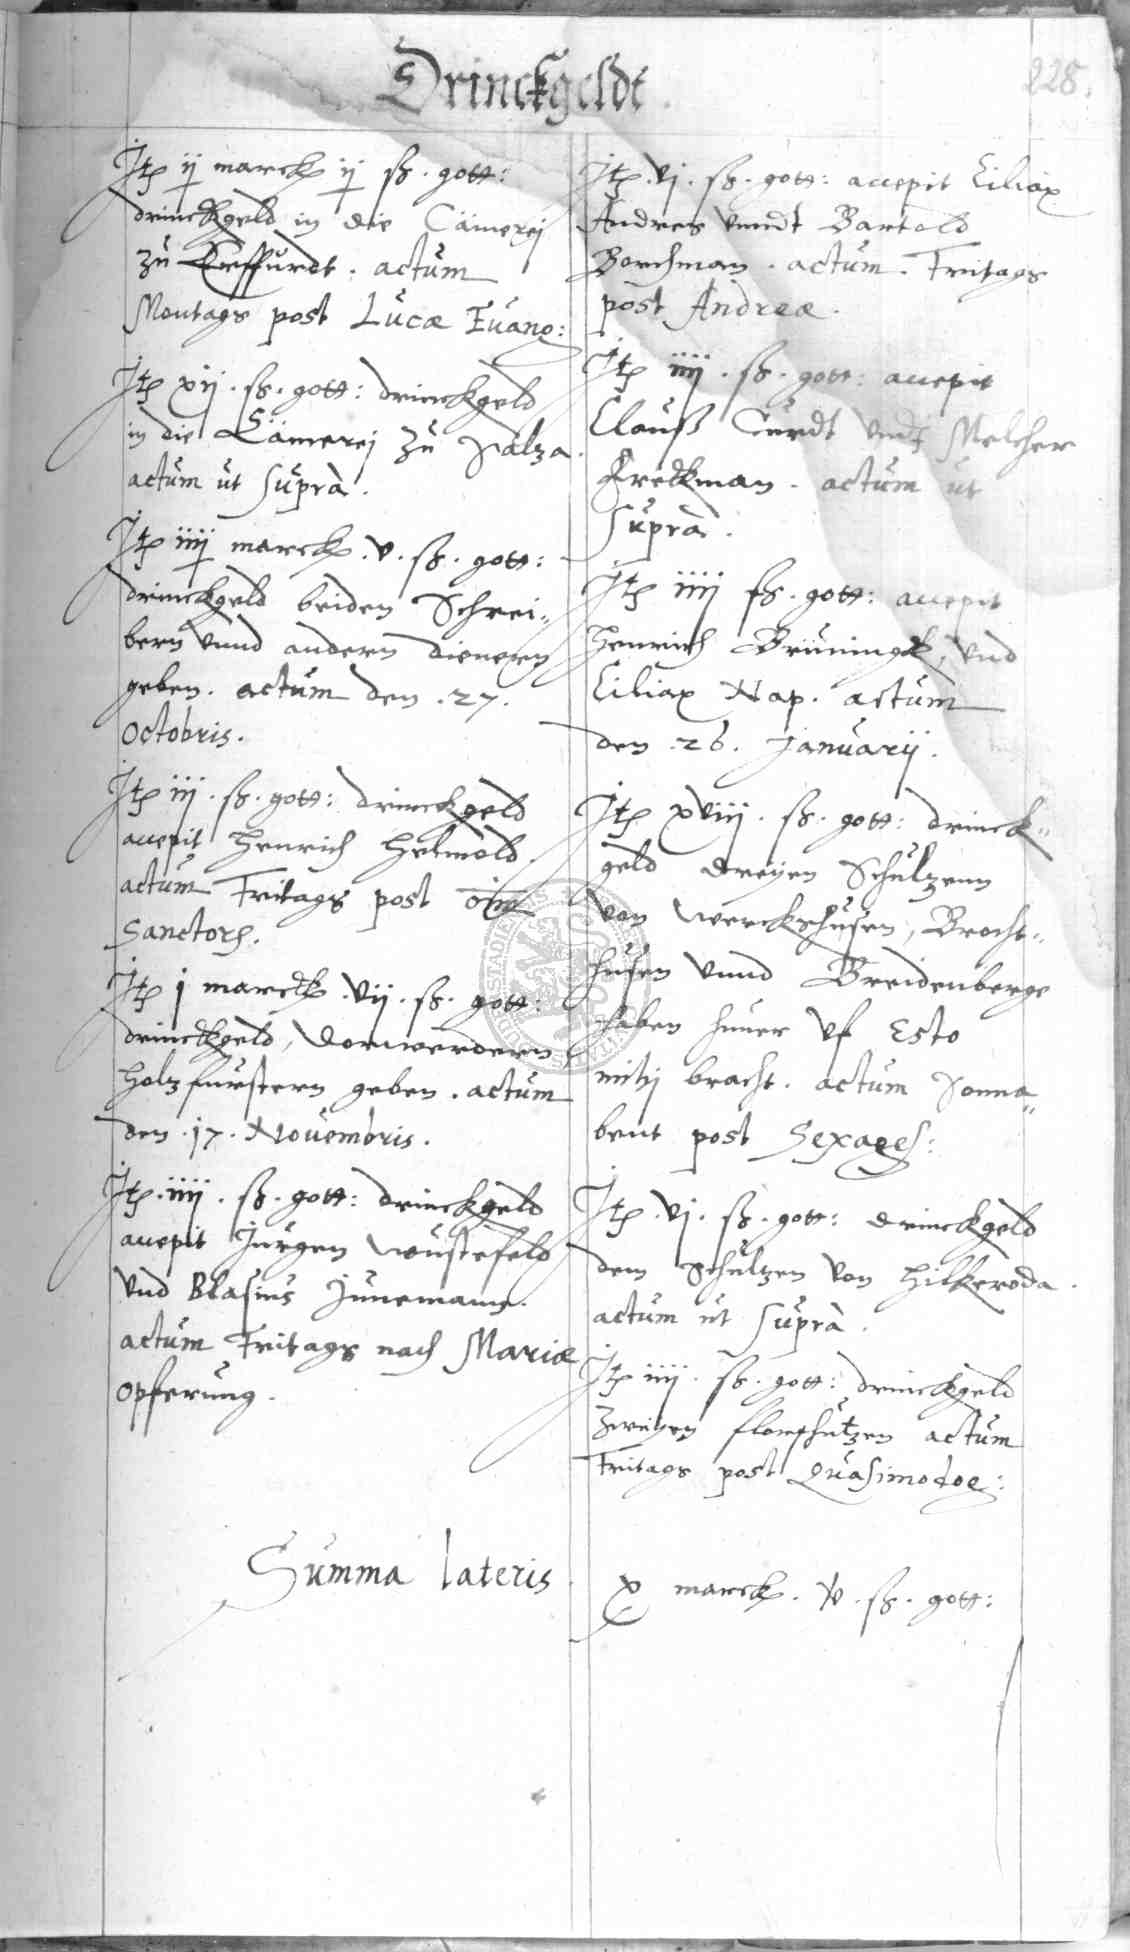 Drinckgeldt.
228.
Itz ij marck ij ß. gott:
drinckgeld in die Cämerej
zu Treffurdt. actum
Montags post Lucæ Euang:
Itz xij. ß. gott: drinckgeld
in die Cämerej zu Saltza.
actum ut suprà.
Itz iiij marck. v. ß. gott:
drinckgeld beiden Schrei"
bern vnnd andern dienern
geben. actum den .27.
Octobris.
Itz iij. ß. gott: drinckgeld
accepit Henrich Helmold
actum Fritags post om
Sanctor.
Itz j marck. vij. ß. gott:
drinckgeld, Dorwerdern
holtzfurstern geben. actum
den .17. Nouembris.
Itz. iiij. ß. gott: drinckgeld
accepit Jurgen Wustefeld
vnd Blasius Junemann.
actum Fritags nach Mariæ
opferung.
Itz. vj. ß. gott: accepit Ciliax
Andres vnndt Bartold
Borchman. actum. Fritags
post Andreæ.
Itz iiij. ß. gott: accepit
Clauß Curdt vndt Melcher
Freckman. actum ut
suprà.
Itz iiij ß. gott: accepit
Henrich Brüningk, vnd
Ciliax Nap. actum
den .26. Januarij.
Itz xviij. ß. gott: drinck"
geld dreyen Schultzenn
von Werckshusen, Brocht"
husen vnnd Breidenberge
haben huner vf Esto
mihj bracht. actum Sonna"
bent post Sexages:
Itz. vj. ß. gott: drinckgeld
dem Schultzen von Hilkeroda.
actum ut suprà.
Itz iiij. ß. gott: drinckgeld
zweyen florschützen actum
Fritags post Quasimodog:
Summa lateris.
x marck. v. ß. gott: